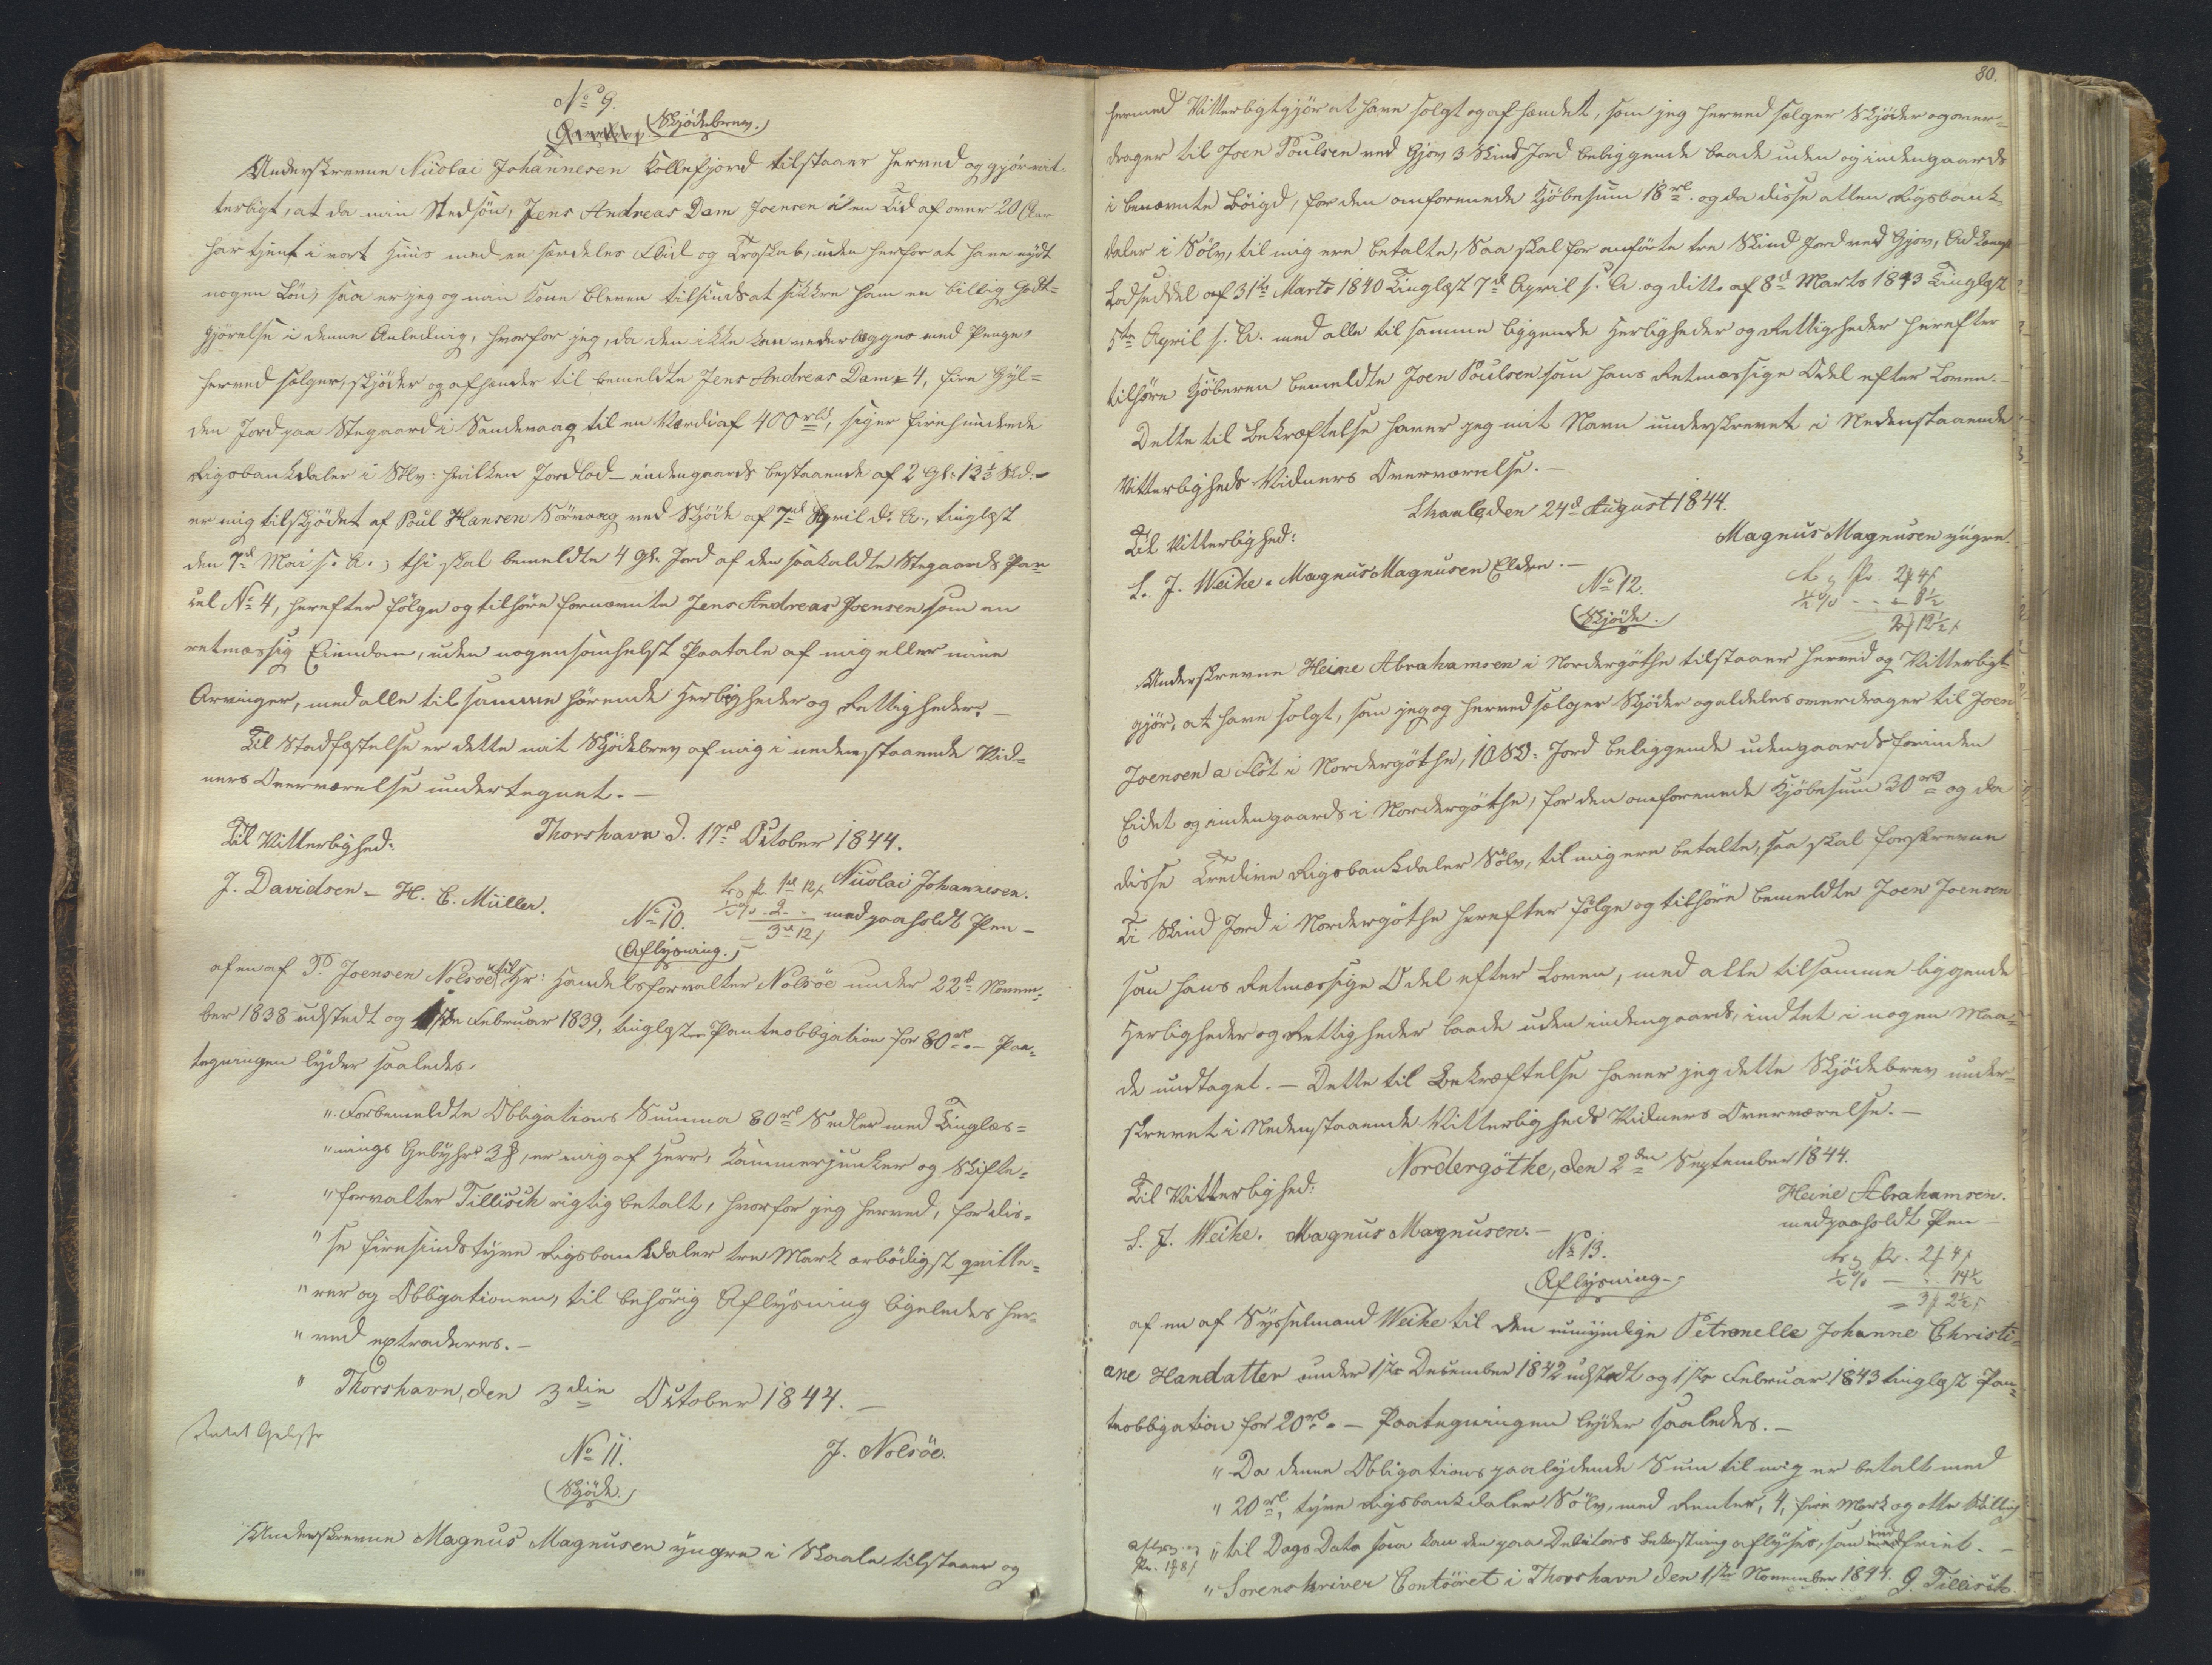 No 9.
Skjödebrev.
Underskrevne Nicolai Johannesen Kollefjord tilstaaer herved og gjör vit-
terligt, at da min Stedsön, Jens Andreas Dam Joensen i en Tid af over 20 Aar
har tjent i vort Huus med en særdeles Flid og Troskab, uden herfor at have nydt
nogen Lön, saa er jeg og min Kone bleven tilsinds at sikkre ham en billig Godt-
gjörelse i denne Anledning, hvorfor jeg, da den ikke kan vederlægges med Penge,
herved sælger, skjöder og afhænder til bemeldte Jens Andreas Dam 4, fire Gyl-
den Jord paa Stegaard i Sandevaag til en Værdi af 400 rbd, siger firehundrede
Rigsbankdaler i Sölv: hvilken Jordlod – indengaards bestaaende af 2 Gl: 13 1/3 Skd: –
er mig tilskjödet af Poul Hansen Sörvaag ved Skjöde af 7de April d. A., tinglæst
den 7d Mai s. A.; thi skal bemeldte 4 Gl. Jord af den saakaldte Stegaards Par-
cel No 4, herefter fölge og tilhöre fornævnte Jens Andreas Joensen som en
retmæssig Eiendom, uden nogensomhelst Paatale af mig eller mine
Arvinger, med alle tilsamme hörende Herligheder og Rettigheder. –
Til Stadfæstelse er dette mit Skjödebrev af mig i nedenstaaende Vid-
ners Overværelse undertegnet. –
Thorshavn d. 17d October 1844.
Til Vitterlighed:
Nicolai Johannesen.
J. Davidsen – H. C. Müller.
med paaholdt Pen –
No 10.
Aflysning.
af en af P. Joensen Nolsöe til Hr: Handelsforvalter Nolsöe under 22d Novem-
ber 1838 udstedt og 1ste Februar 1839, tinglæst Panteobligation for 80 rd. – Paa-
tegningen lyder saaledes.
" Forbemeldte Obligations Summa 80 rd Sedler med Tinglæs-
" nings Gebyhr 3 ₰, er mig af Herr, Kammerjunker og Skifte-
" forvalter Tillisch rigtig betalt, hvorfor jeg herved, for dis-
" se firesindstyve Rigsbankdaler tre Mark ærbödigst qvitte-
" rer og Obligationen, til behörig Aflysning ligeledes her-
" ved extraderes. –
" Thorshavn, den 3die October 1844. –
J. Nolsöe.
No 11.
Skjöde.
Underskrevne Magnus Magnusen yngre i Skaale tilstaaer og
80.
hermed Vitterligtgjör at have solgt og afhændet, som jeg herved sælger Skjöder og over-
drager til Joen Poulsen ved Gjov 3 Skind Jord beliggende baade uden og indengaards
i benævnte Böigd, for den omforenede Kjöbesum 18 rd. og da disse atten Rigsbank-
daler i Sölv, til mig ere betalte, Saa skal for anförte tre Skind Jord ved Gjov, Adkomst
Lodseddel af 31te Marts 1840 Tinglæst 7d April s. A. og ditto af 8d Marts 1843 Tinglæst
5te April s. A. med alle til samme liggende Herligheder og Rettigheder herefter
tilhöre Kjöberen bemeldte Joen Poulsen som hans Retmæssige Odel efter Loven. –
Dette til Bekræftelse haver jeg mit Navn underskrevet i Nedenstaaende
Vitterligheds Vidners Overværelse. –
Skaale, den 24d August 1844.
Til Vitterlighed:
Magnus Magnusen yngre.
S. J. Weihe. Magnus Magnusen Eldre. –
No 12.
Skjöde.
Underskrevne Heine Abrahamsen i Nordergöthe tilstaaer herved og Vitterligt-
gjör, at have solgt, som jeg og herved sælger Skjöder og aldeles overdrager til Joen
Joensen a Flöt i Nordergöthe, 10 Sk: Jord beliggende udengaards forinden
Eidet og indengaards i Nordergöthe, for den omforenede Kjöbesum 30 rd og da
disse Tredive Rigsbankdaler Sölv, til mig ere betalte, saa skal forskrevne
Ti Skind Jord i Nordergöthe herefter fölge og tilhöre bemeldte Joen Joensen
som hans Retmæssige Odel efter Loven, med alle tilsamme liggende
Herligheder og Rettigheder baade uden indengaards, indtet i nogen Maa-
de undtaget. – Dette til Bekræftelse haver jeg dette Skjödebrev under-
skrevet i Nedenstaaende Vitterligheds Vidners Overværelse. –
Nordergöthe, den 2den September 1844.
Til Vitterlighed:
Heine Abrahamsen.
med paaholdt Pen –
S. J. Weihe. Magnus Magnusen. –
No 13.
Aflysning
af en af Sysselmand Weihe til den umyndige Petronelle Johanne Christi-
ane Handatter under 1ste December 1842 udstedt og 1ste Februar 1843 tinglæst Pan-
teobligation for 20 rd. – Paategningen lyder saaledes. –
" Da denne Obligations paalydende Sum til mig er betalt med
" 20 rd, tyve Rigsbankdaler Sölv, med Renter, 4, fire Mark og otte Skilling
" til Dags Dato saa kan den paa Debitors Bekostning aflyses, som indfriet. –
" Sorenskriver Contoiret i Thorshavn den 1ste November 1844. G. Tillisch